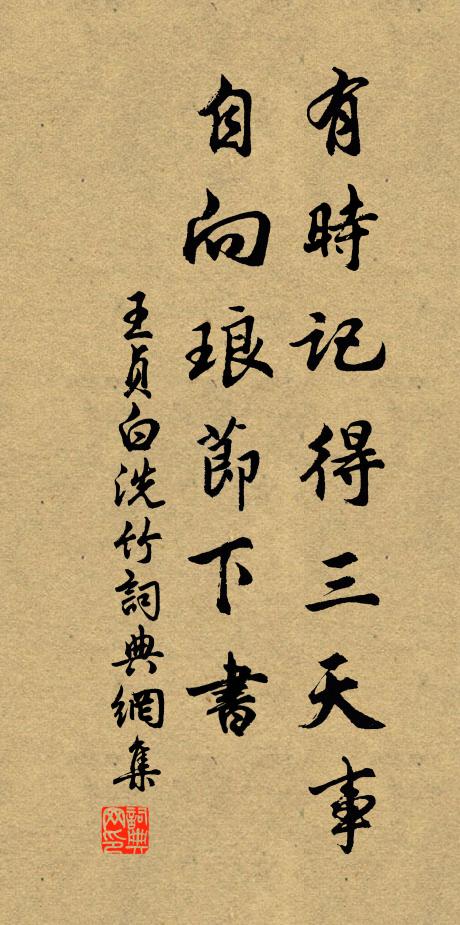 有時記得三天事
自向琅節下書
王貞白洗竹詞典網集
詞典網印